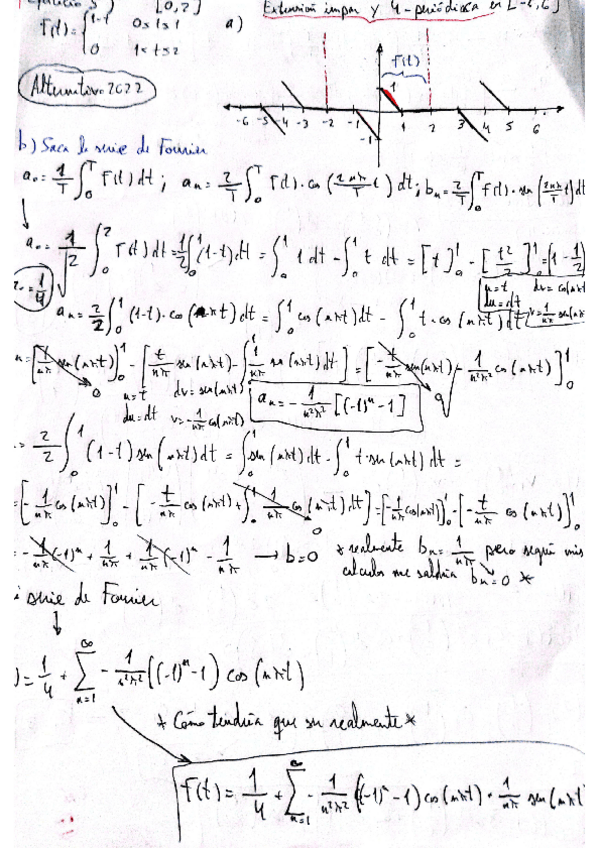 Ejercicio 3) [0,2] Extensión impar y 4-periódica en [-6,6]
f(t)={1-t 0≤t≤1 a)
0 1<t≤2
f(t)
Alternativo 2022
1
-6 -5 -4 -3 -2 -1 1 2 3 4 5 6
-1
b) Saca la serie de Fourier
a₀ = 1/T ∫₀ᵀ f(t) dt ; aₙ = 2/T ∫₀ᵀ f(t)·cos(2nπ/T t) dt ; bₙ = 2/T ∫₀ᵀ f(t)·sen(2nπ/T t) dt
a₀ = 1/2 ∫₀² f(t) dt = 1/2 ∫₀¹ (1-t) dt = ∫₀¹ 1 dt - ∫₀¹ t dt = [t]₀¹ - [t²/2]₀¹ = (1 - 1/2)
a₀ = 1/4
u=t dv=cos(nπt)
du=dt v=1/nπ sen(nπt)
aₙ = 2/2 ∫₀¹ (1-t)·cos(nπt) dt = ∫₀¹ cos(nπt) dt - ∫₀¹ t·cos(nπt) dt
= [1/nπ sen(nπt)]₀¹ - [t/nπ sen(nπt) - ∫₀¹ 1/nπ sen(nπt) dt] = [-t/nπ sen(nπt) - 1/n²π² cos(nπt)]₀¹
0 0
u=t dv=sen(nπt)
du=dt v=-1/nπ cos(nπt)
aₙ = -1/n²π² [(-1)ⁿ-1]
= 2/2 ∫₀¹ (1-t) sen(nπt) dt = ∫₀¹ sen(nπt) dt - ∫₀¹ t·sen(nπt) dt =
= [-1/nπ cos(nπt)]₀¹ - [-t/nπ cos(nπt) + ∫₀¹ 1/nπ cos(nπt) dt] = [-1/nπ cos(nπt)]₀¹ - [-t/nπ cos(nπt)]₀¹
0
= -1/nπ (-1)ⁿ + 1/nπ + 1/nπ (-1)ⁿ - 1/nπ → b=0 * realmente bₙ = 1/nπ pero según mis
calculos me saldría bₙ=0 *
serie de Fourier
= 1/4 + ∞∑n=1 -1/n²π² ((-1)ⁿ-1) cos(nπt)
* Cómo tendría que ser realmente *
f(t) = 1/4 + ∞∑n=1 -1/n²π² ((-1)ⁿ-1) cos(nπt) · 1/nπ sen(nπt